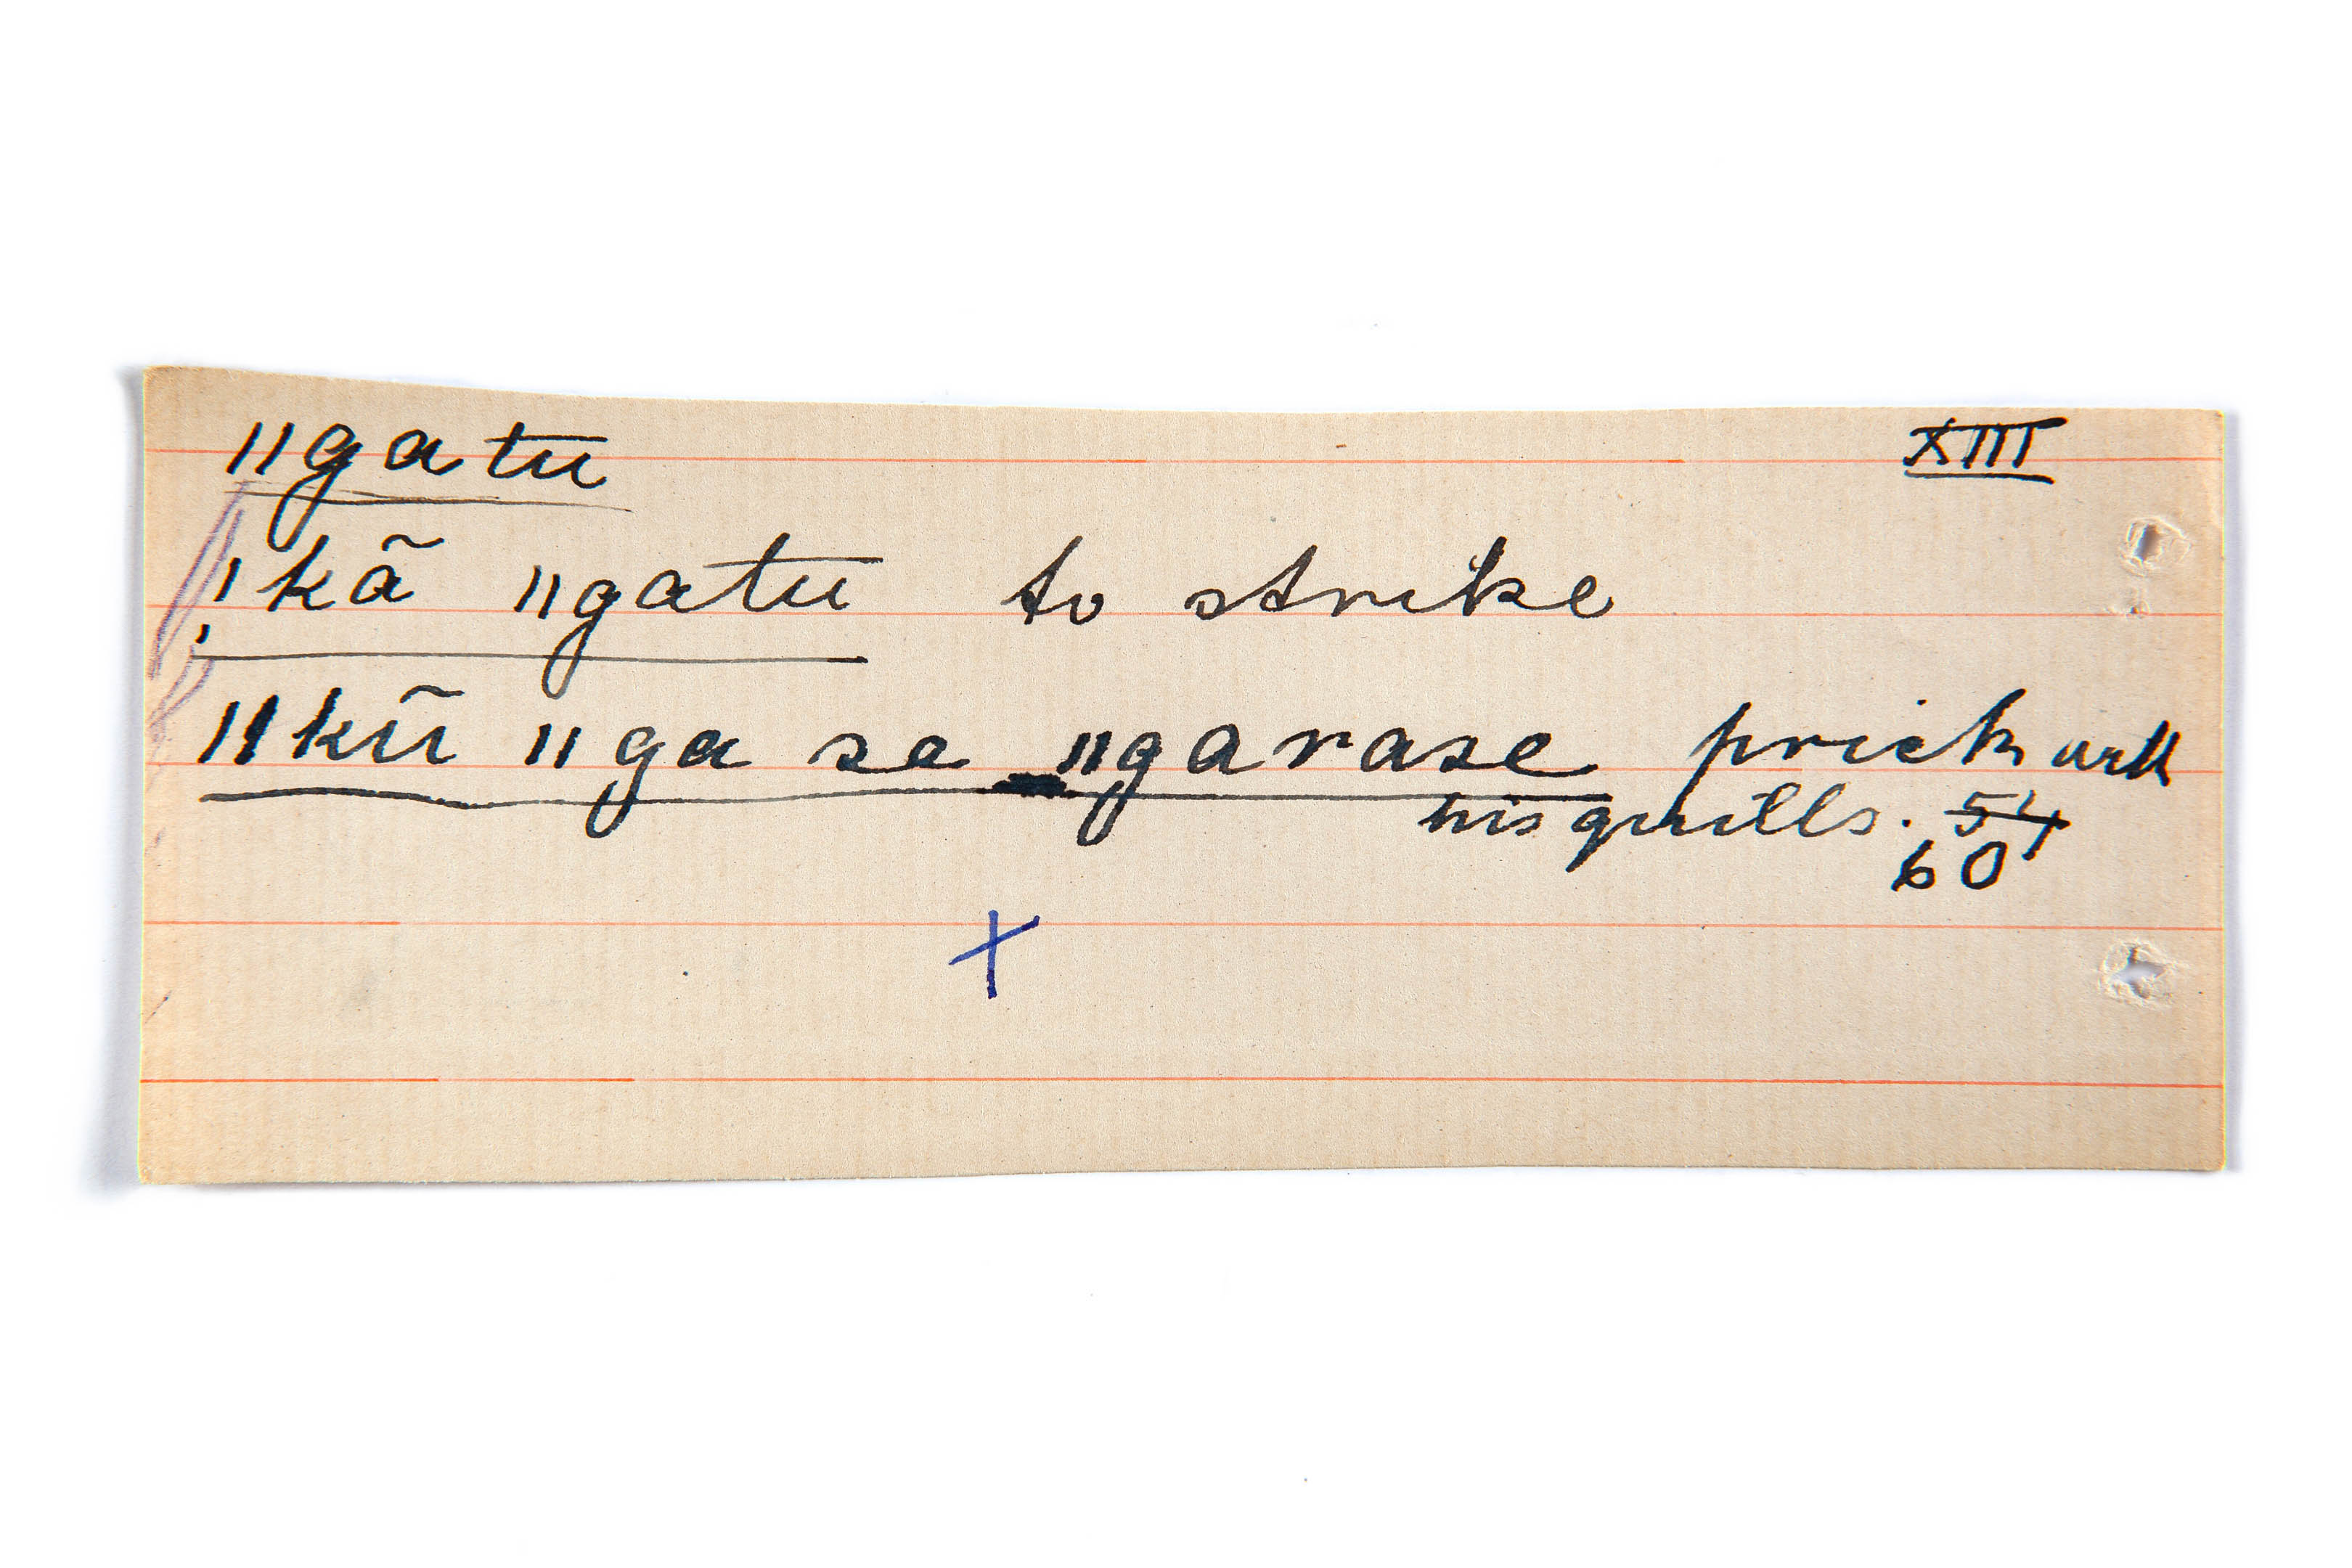 ǁgatu XIII
ꜝkã ǁgatu to strike
ǁkũ ǁga se ǁgarase prick with
his quills. 54
60
X